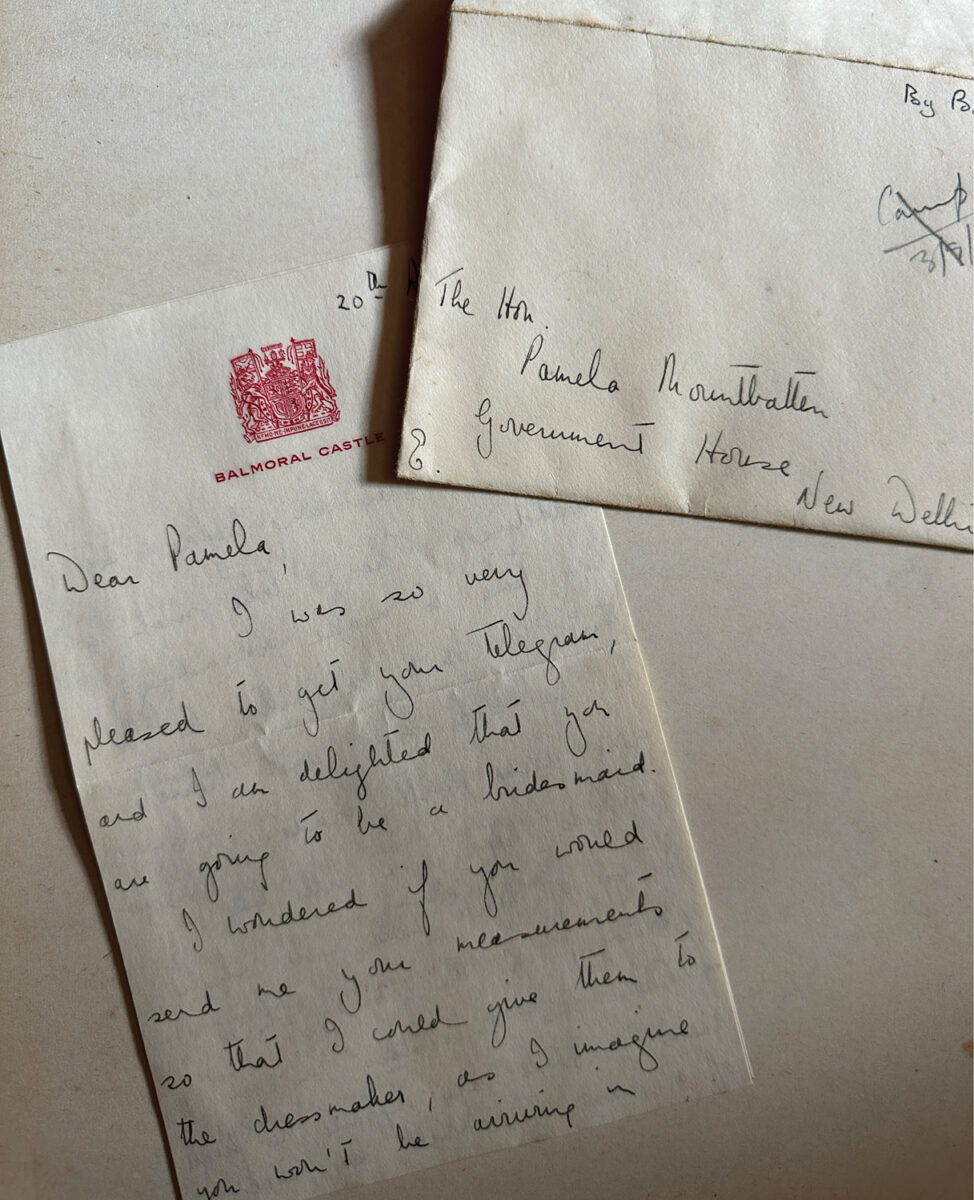 By B
Camp
3/9/
The Hon.
Pamela Mountbatten
Government House,
New Delhi
E.
20th A
NEMO ME IMPUNE LACESSIT
BALMORAL CASTLE
Dear Pamela,
I was so very
pleased to get your telegram,
and I am delighted that you
are going to be a bridesmaid.
I wondered if you would
send me your measurements
so that I could give them to
the dressmaker, as I imagine
you won't be arriving in